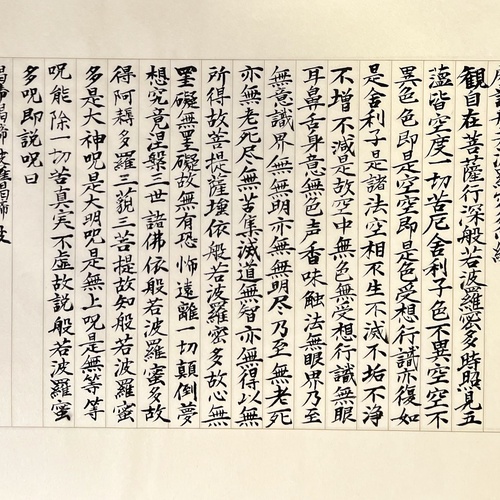 観自在菩薩行深般若波羅蜜多時照見五
蘊皆空度一切苦厄舎利子色不異空空不
異色色即是空空即是色受想行識亦復如
是舎利子是諸法空相不生不滅不垢不浄
不増不減是故空中無色無受想行識無眼
耳鼻舌身意無色声香味触法無眼界乃至
無意識界無無明亦無無明尽乃至無老死
亦無老死尽無苦集滅道無智亦無得以無
所得故菩提薩埵依般若波羅蜜多故心無
罣礙無罣礙故無有恐怖遠離一切顛倒夢
想究竟涅槃三世諸佛依般若波羅蜜多故
得阿耨多羅三藐三菩提故知般若波羅蜜
多是大神呪是大明呪是無上呪是無等等
呪能除一切苦真実不虚故説般若波羅蜜
多呪即説呪曰